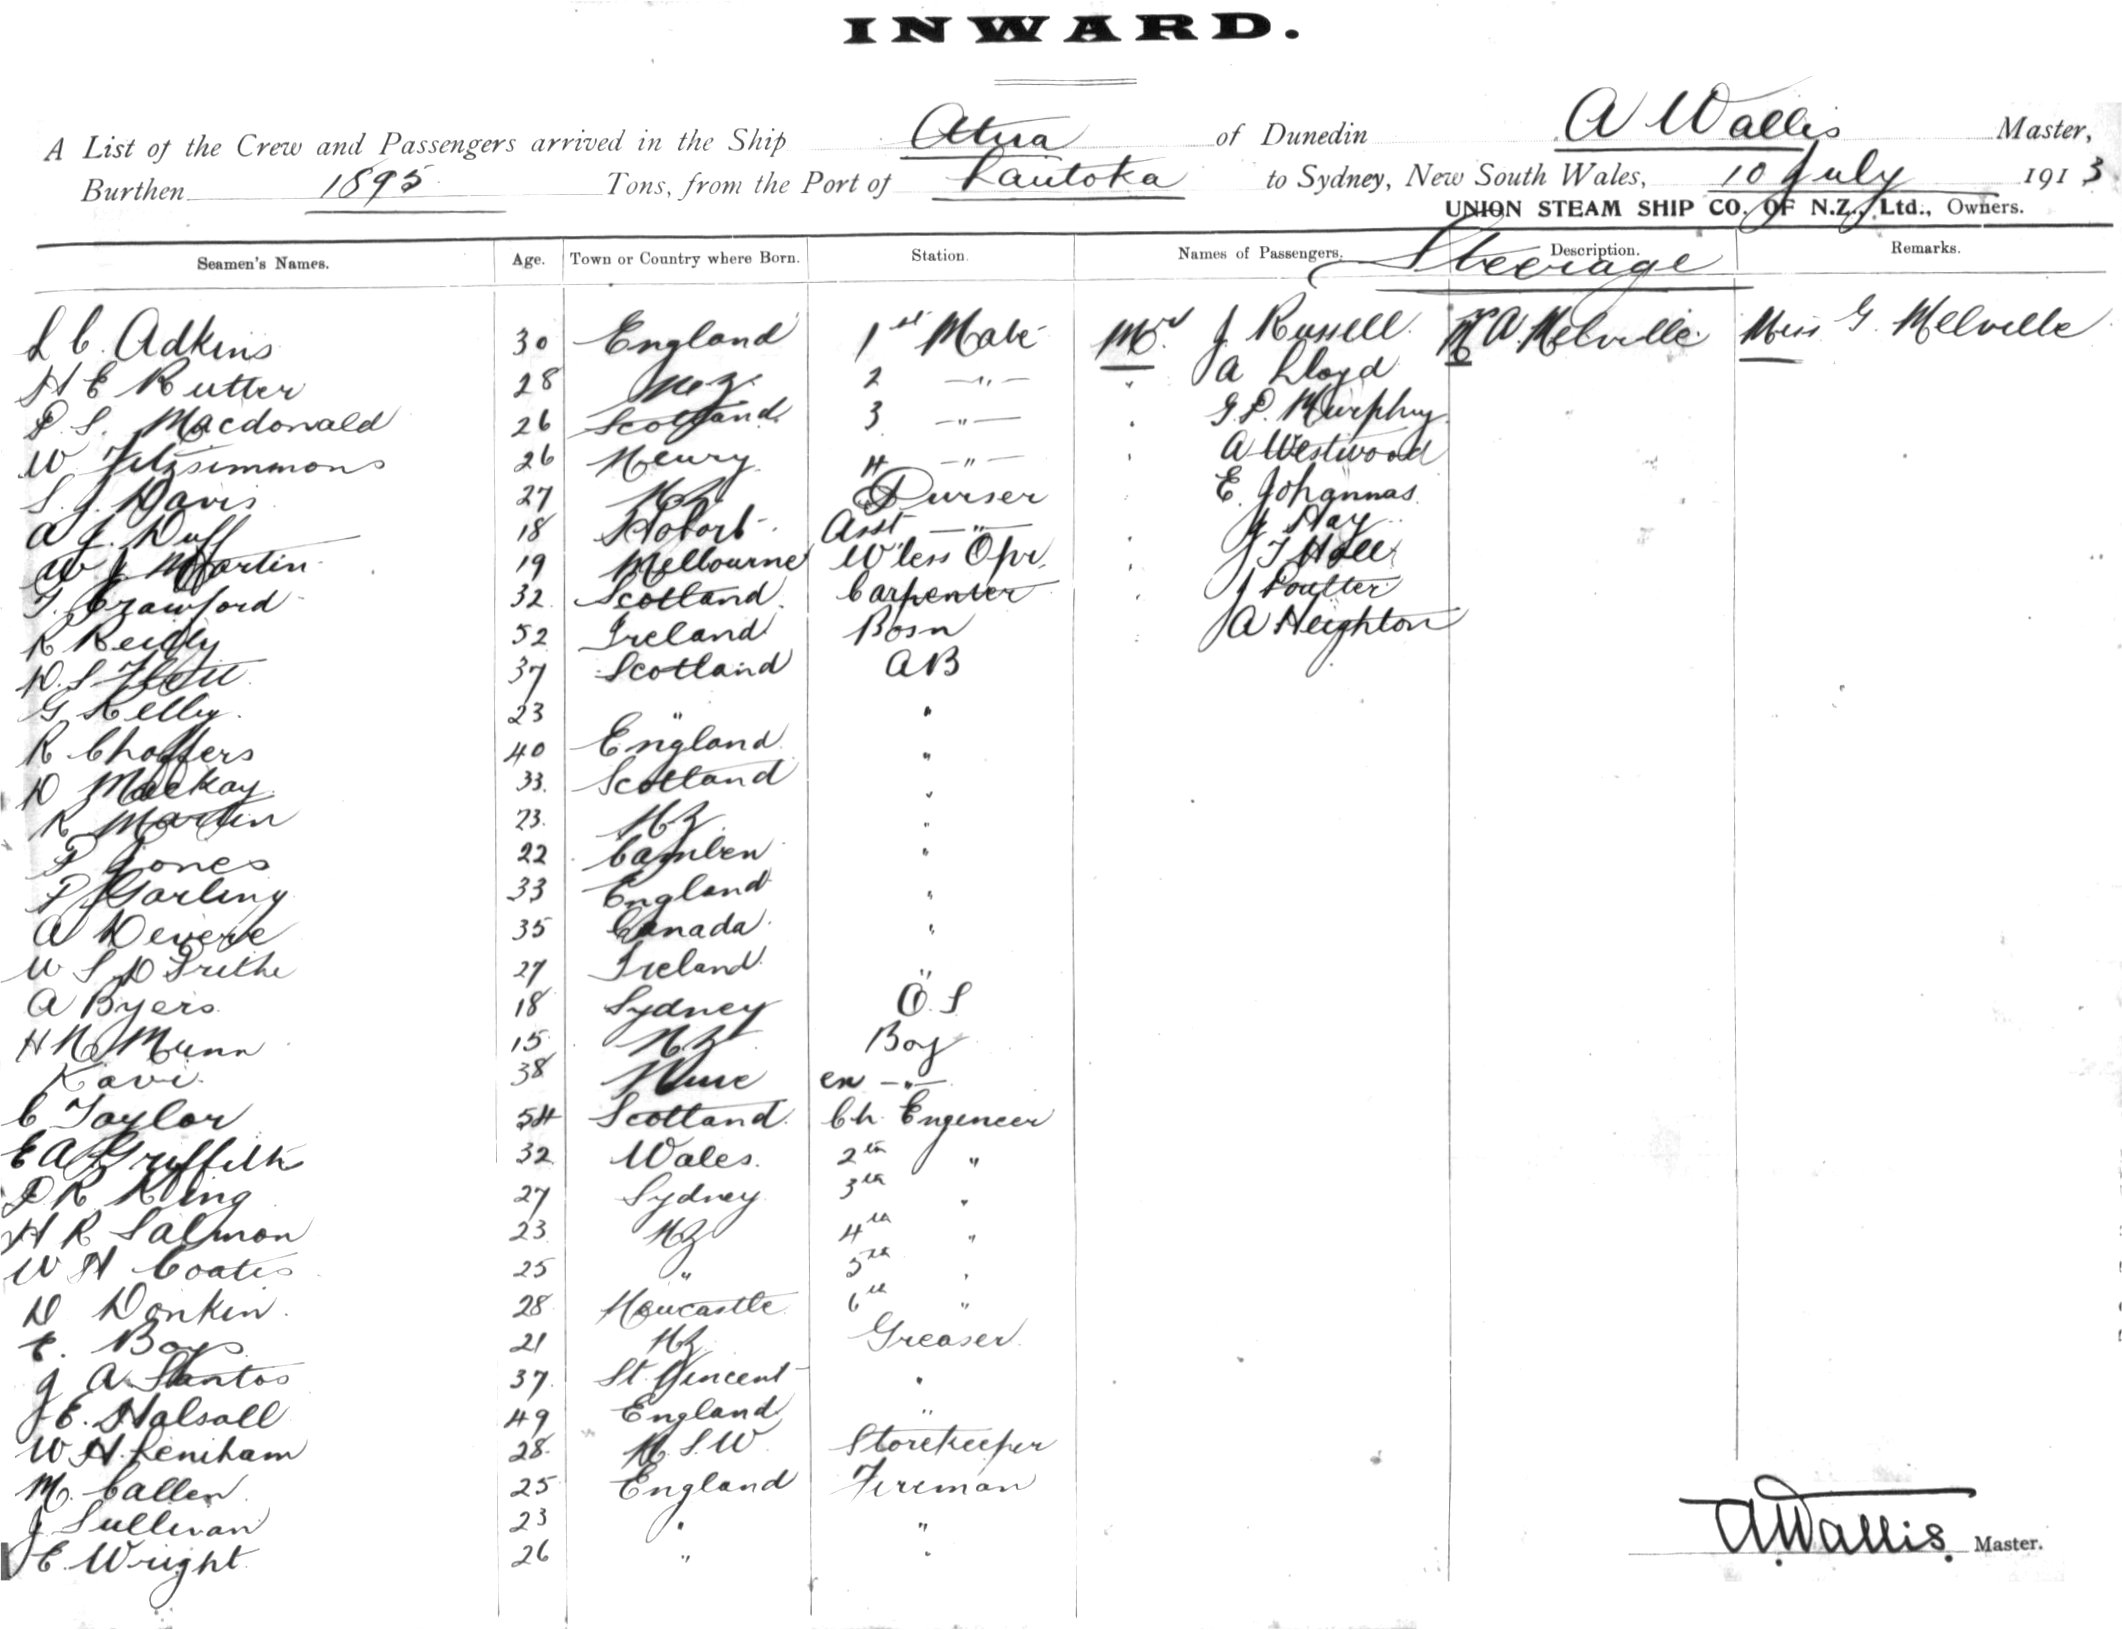 INWARD.
A List of the Crew and Passengers arrived in the Ship Atua of Dunedin A Wallis Master,
Burthen 1895 Tons, from the Port of Lautoka to Sydney, New South Wales, 10 July 1913
UNION STEAM SHIP CO. OF N.Z., Ltd., Owners.
Seamen's Names. Age. Town or Country where Born. Station. Names of Passengers. Description. Remarks.
Steerage
L C Adkins 30 England 1st Mate Mr J Russell Mr A Melville Miss G Melville
H E Rutter 28 NZ 2 -"- " A Lloyd
D S. Macdonald 26 Scotland 3 -"- " G.P. Murphy
W Fitzsimmons 26 Newry 4 -"- " A Westwood
S. J. Davis 27 NZ Purser E. Johannas
A J. Duff 18 Hobart Asst -"- J Hay
W J Martin 19 Melbourne W'less Opr. " J T Hall
T. Crawford 32 Scotland Carpenter " J Poulter
R Reidy 52 Ireland Bosn " A Heighton
D. S 37 Scotland AB
G Kelly 23 " "
R Choffers 40 England "
D Mackay 33 Scotland "
R Martin 23 NZ "
P Jones 22 "
P Garling 33 England "
A Devere 35 Canada "
W S D 27 Ireland "
A Byers 18 Sydney O.S
H N Munn 15 NZ Boy
Kavi 38 Niue en -"-
C Taylor 54 Scotland Ch. Engineer
E A Griffith 32 Wales 2nd "
D R King 27 Sydney 3rd "
H R Salmon 23 NZ 4th "
W H Coates 25 " 5th "
D Donkin 28 Newcastle 6th "
E. Boys 21 NZ Greaser
J A Santos 37 St. Vincent "
J E. Halsall 49 England "
W H. Leniham 28 N.S.W Storekeeper
M. Callen 25 England Fireman
J Sullivan 23 " "
E Wright 26 " "
A. Wallis. Master.